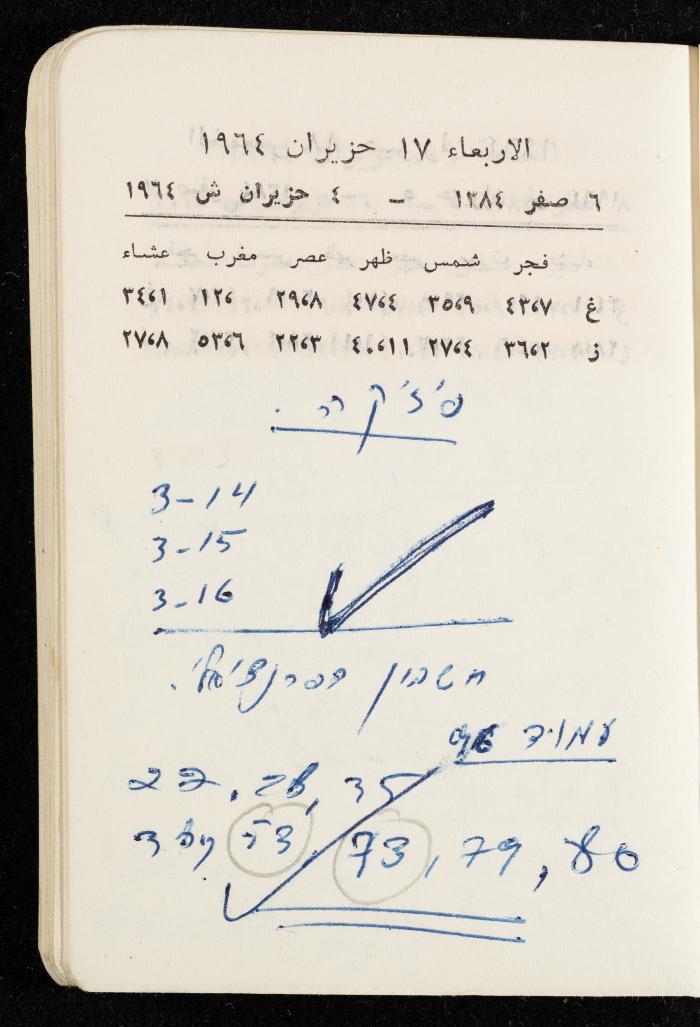 الاربعاء ١٧ حزيران ١٩٦٤
٦ صفر ١٣٨٤ - ٤ حزيران ش ١٩٦٤
فجر شمس ظهر عصر مغرب عشاء
غ ٤٣،٧ ٣٥،٩ ٤٧،٤ ٢٩،٨ ١٢، ٣٤،١
ز ٣٦،٢ ٢٧،٤ ٤٠،١١ ٢٢،٣ ٥٣،٦ ٢٧،٨
פיזיקה.
3-14
3-15
3-16
חשבון דפרנציאלי.
עמוד
22, 28, 35
53, 73, 79, 80